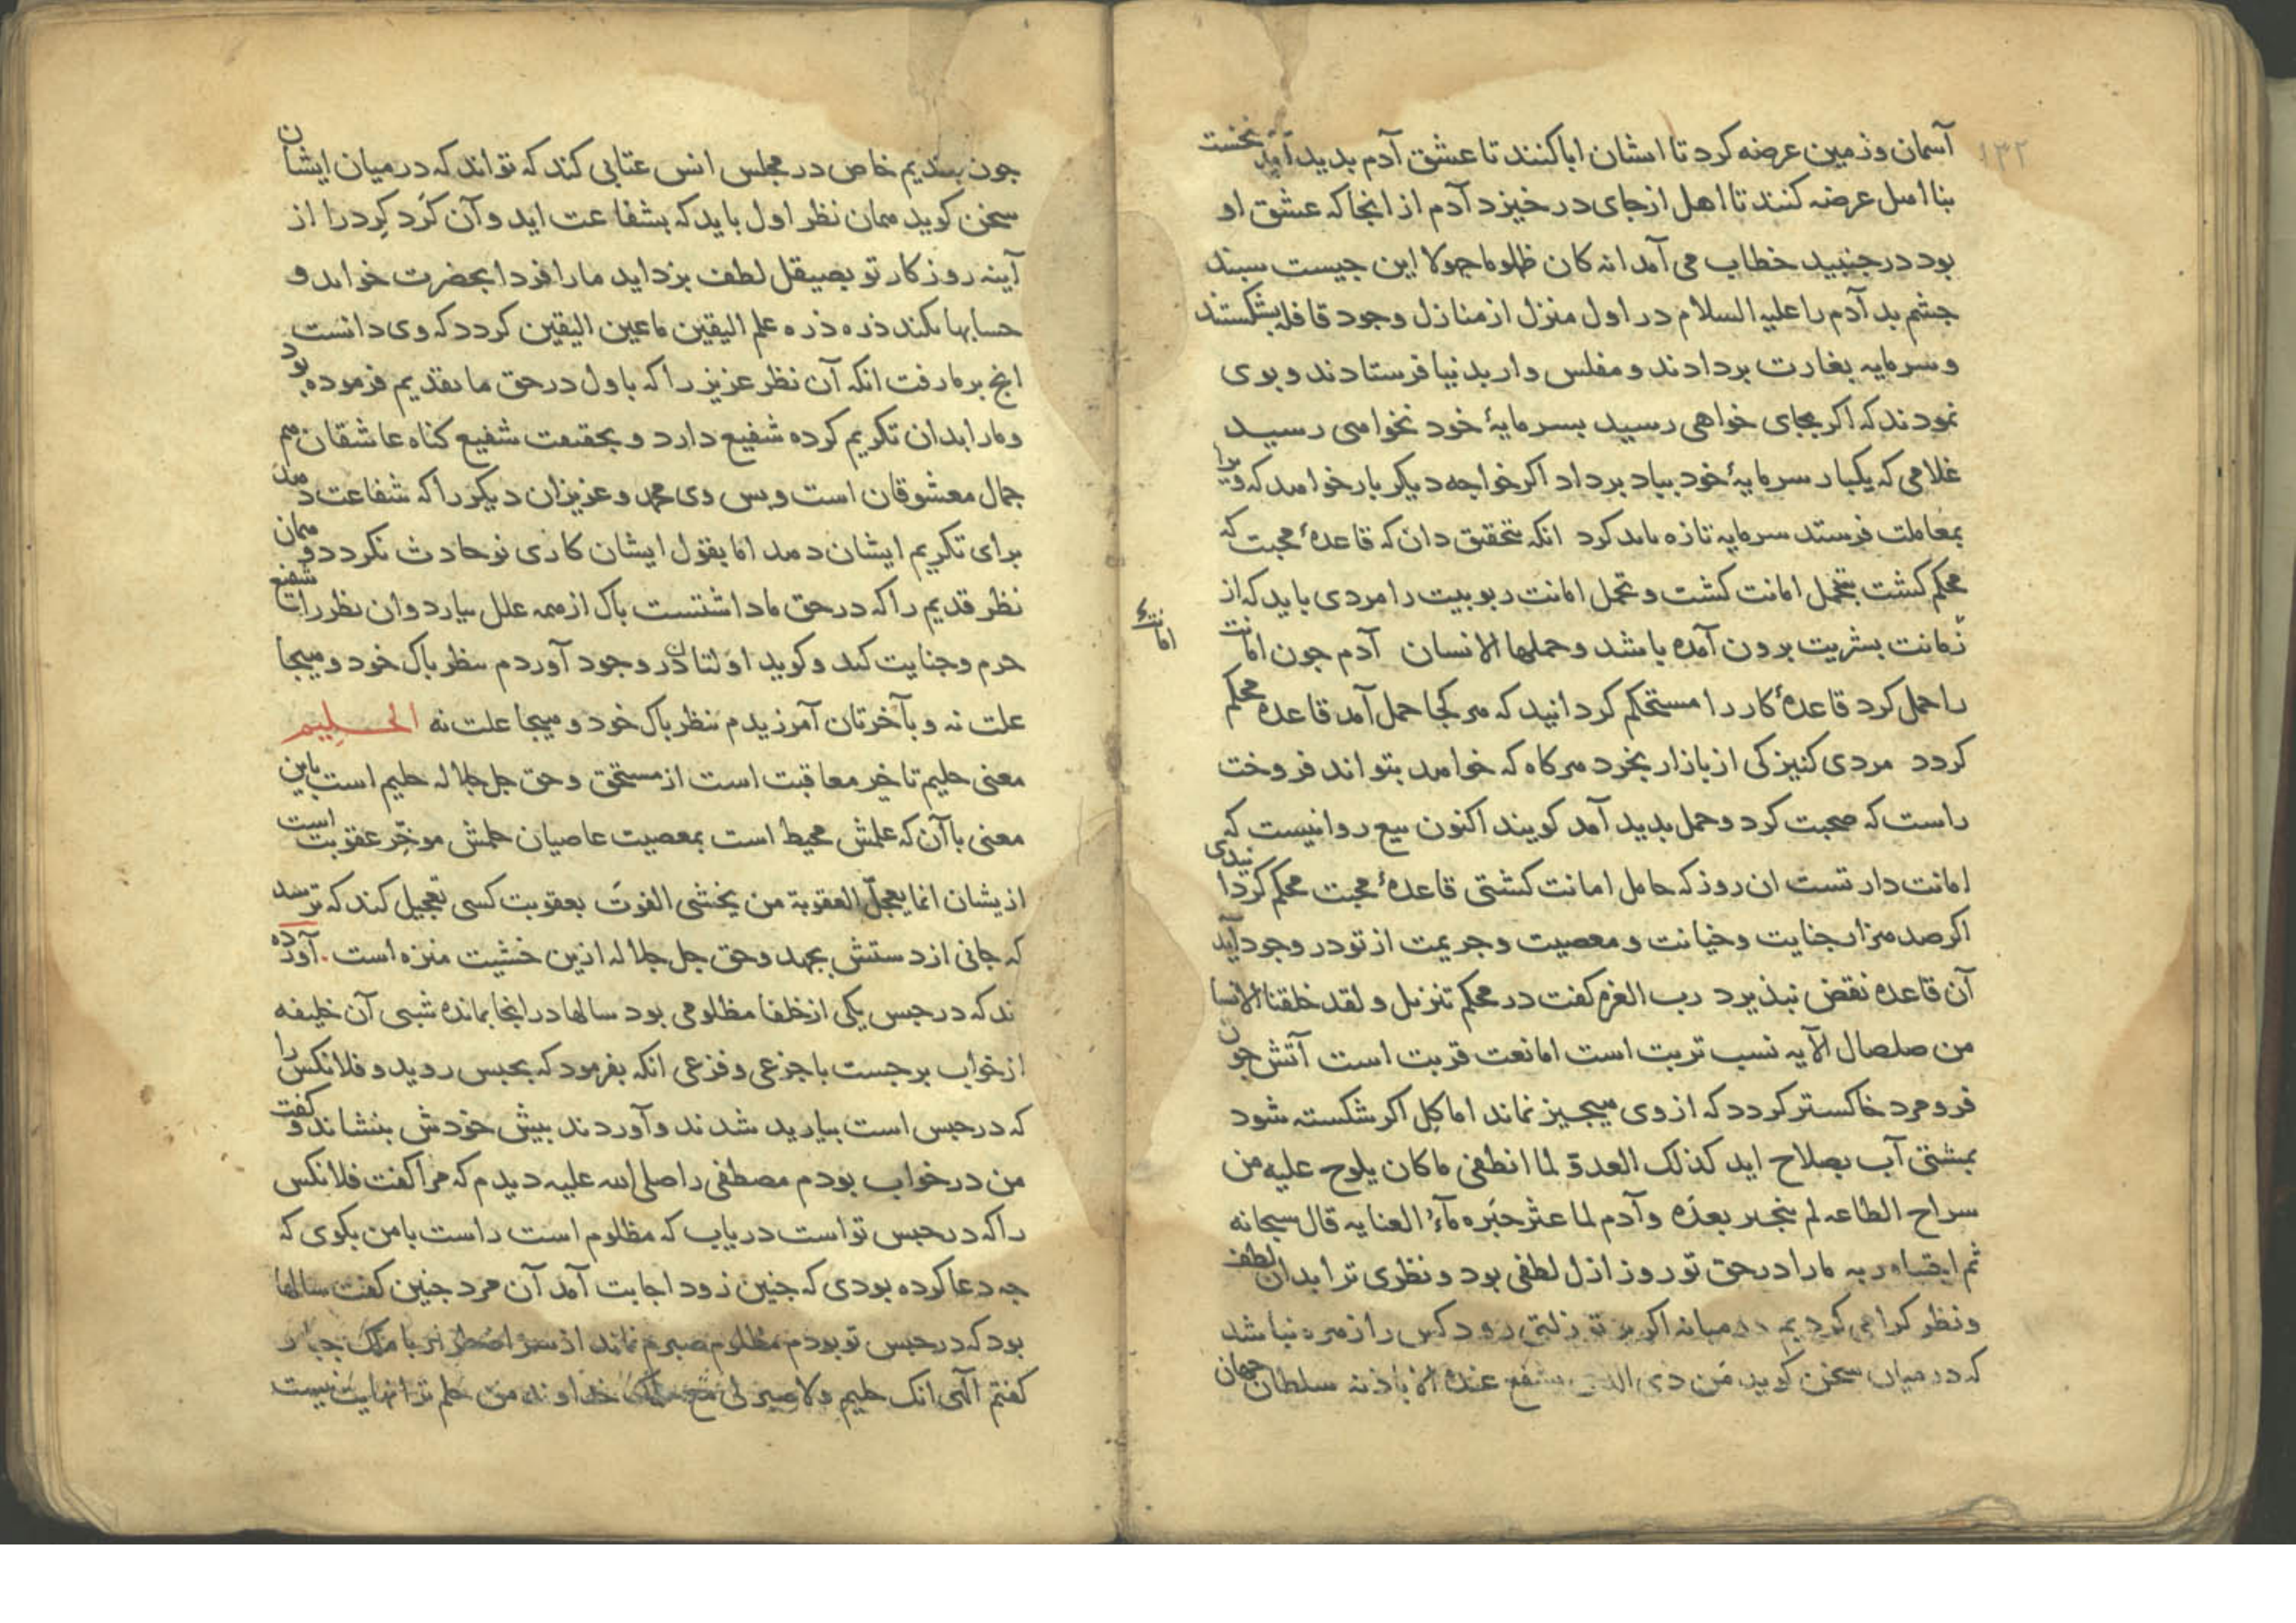 ۱۳۲
آسمان وزمین عرضه کرد تا ایشان ابا کنند تا عشق آدم بدید آمد نخست
بنا اهل عرضه کنند تا اهل از جای در خیزد آدم از انجا که عشق او
بود در جنبید خطاب می آمد انه کان ظلوما جهولا این جیست سبند
جشم بد آدم را علیه السلام در اول منزل از منازل وجود قافله بشکستند
و سرمایه بغارت بردادند و مفلس وار بدنیا فرستادند و بوی
نمودند که اکر بجای خواهی رسید بسرمایهٔ خود نخواهی رسید
غلامی که یکبار سرمایهٔ خود بباد برداد اکر خواجه دیکر بار خواهد که ویرا
بمعاملت فرستد سرمایه تازه باید کرد انکه بتحقیق دان که قاعدهٔ محبت که
محکم کشت بتحمل امانت کشت و تحمل امانت ربوبیت را مردی باید که از
زمانت بشریت برون آمده باشد وحملها الانسان آدم جون امانت
امانت
را حمل کرد قاعدهٔ کار را مستحکم کردانید که هر کجا حمل آمد قاعده محکم
کردد مردی کنیزکی از بازار بخرد هرکاه که خواهد بتواند فروخت
راست که صحبت کرد و حمل بدید آمد کویند اکنون بیع روا نیست که
امانت دار تست ان روز که حامل امانت کشتی قاعدهٔ محبت محکم کردانیدی
اکر صد هزار جنایت و خیانت و معصیت و جریمت از تو در وجود آید
آن قاعده نقض نبذیرد رب العزه کفت در محکم تنزیل ولقد خلقنا الانسان
من صلصال الآیه نسب تربت است اما نعت قربت است آتش جون
فرو مرد خاکستر کردد که از وی هیجیز نماند اما کِل اکر شکسته شود
بمشتی آب بصلاح اید کذلک العدو لما انطفی ما کان یلوح علیه من
سراج الطاعه لم ینجبر بعدَه وآدم لما عثر جبَره مآءُ العنایه قال سبحانه
ثم اجتباه ربه ما را در حق تو روز ازل لطفی بود و نظری ترا بدان لطف
و نظر کرامی کردیم در میانه اکر بر تو زلتی رود کس را زهره نباشد
که در میان سخن کوید مَن ذی الذی یشفع عنده الا باذنه سلطان جهان
جون بندیم خاص در مجلس انس عتابی کند که تواند که در میان ایشان
سخن کوید همان نظر اول باید که بشفاعت اید وآن کَرد کِرد را از
آینه روزکار تو بصیقل لطف بزداید ما را فردا بحضرت خواند و
حسابها بکند ذره ذره علم الیقین ما عین الیقین کردد که وی دانست
انج بر ما رفت انکه آن نظر عزیز را که باول در حق ما تقدیم فرموده بود
و ما را بدان تکریم کرده شفیع دارد و بحقیقت شفیع کناه عاشقان هم
جمال معشوقان است و بس وی محمد و عزیزان دیکر را که شفاعت دهد
برای تکریم ایشان دهد اما بقول ایشان کاری نو حادث نکردد و همان
نظر قدیم را که در حق ما داشتست باک از همه علل بیارد وان نظر را شفیع
جرم و جنایت کند و کوید اولتان در وجود آوردم بنظر باک خود و هیجا
علت نه و بآخرتان آمرزیدم بنظر باک خود و هیجا علت نه الحلیم
معنی حلیم تاخیر معاقبت است از مستحق و حق جل جلاله حلیم است باین
معنی با آن که علمش محیط است بمعصیت عاصیان حلمش موخِّر عقوبت است
ازیشان انما یعجل العقوبة من یخشی الفوتَ بعقوبت کسی تعجیل کند که ترسد
که جانی از دستش بجهد وحق جل جلاله ازین خشیت منزه است. آورده
ند که در حبس یکی از خلفا مظلومی بود سالها در انجا بمانده شبی آن خلیفه
از خواب برجست با جزعی و فزعی انکه بفرمود که بحبس روید و فلانکس را
که در حبس است بیارید شدند و آوردند بیش خودش بنشاند و کفت
من در خواب بودم مصطفی را صلی الله علیه دیدم که مرا کفت فلانکس
را که در حبس تو است دریاب که مظلوم است راست با من بکوی که
جه دعا کرده بودی که جنین زود اجابت آمد آن مرد جنین کفت سالها
بود که در حبس تو بودم مظلوم صبرم نماند از سر اضطرار با ملک جبار
کفتم الهی انک حلیم ولا صبر لی مع حلمک خداوند من حلم ترا نهایت نیست